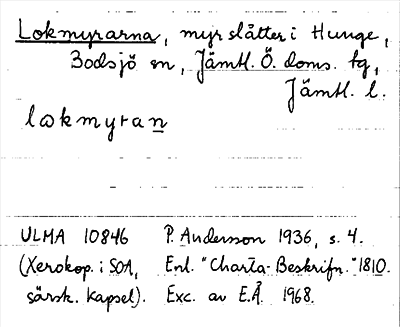 Lokmyrarna, myrslåtter i Hunge,
Bodsjö sn, Jämtl. Ö. doms. tg,
Jämtl. l.
lωkmyran
ULMA 10846 P. Andersson 1936, s. 4.
(Xerokop. i SOA, Enl. "Charta-Beskrifn." 1810.
särsk. kapsel). Exc. av E.Å. 1968.